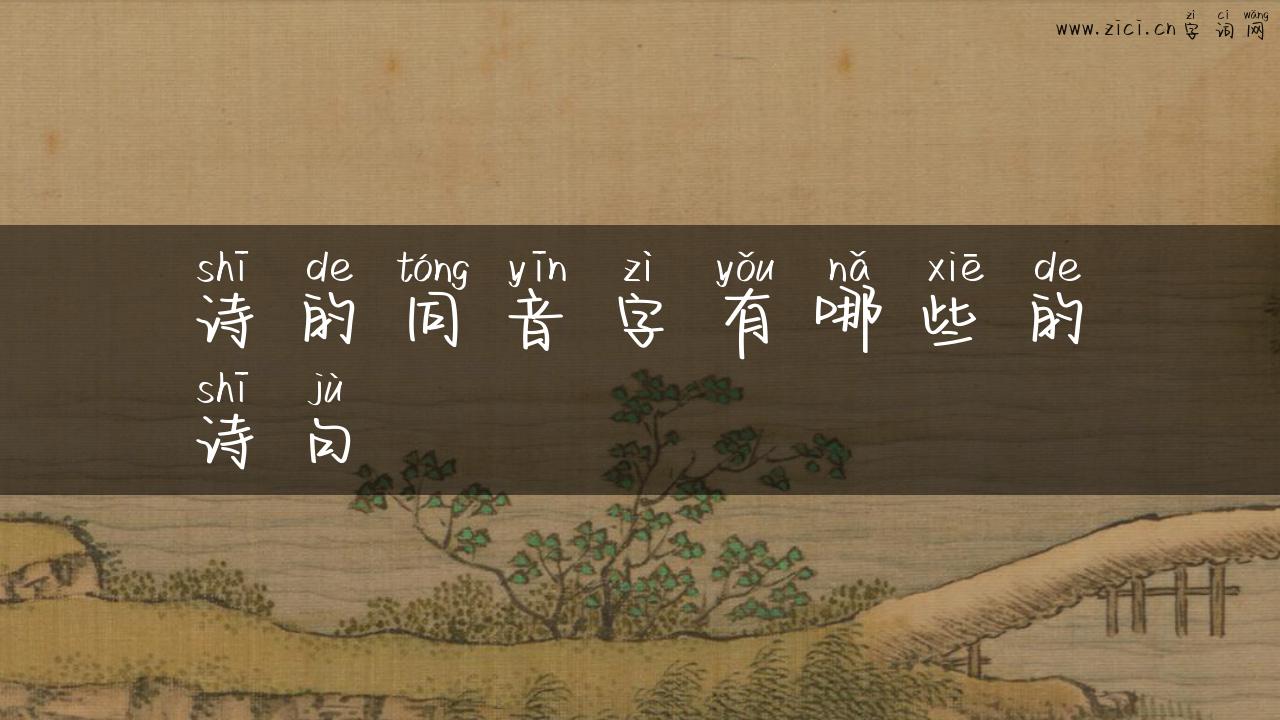 zì cí wǎng
www.zici.cn 字词网
shī de tóng yīn zì yǒu nǎ xiē de
诗的同音字有哪些的
shī jù
诗句